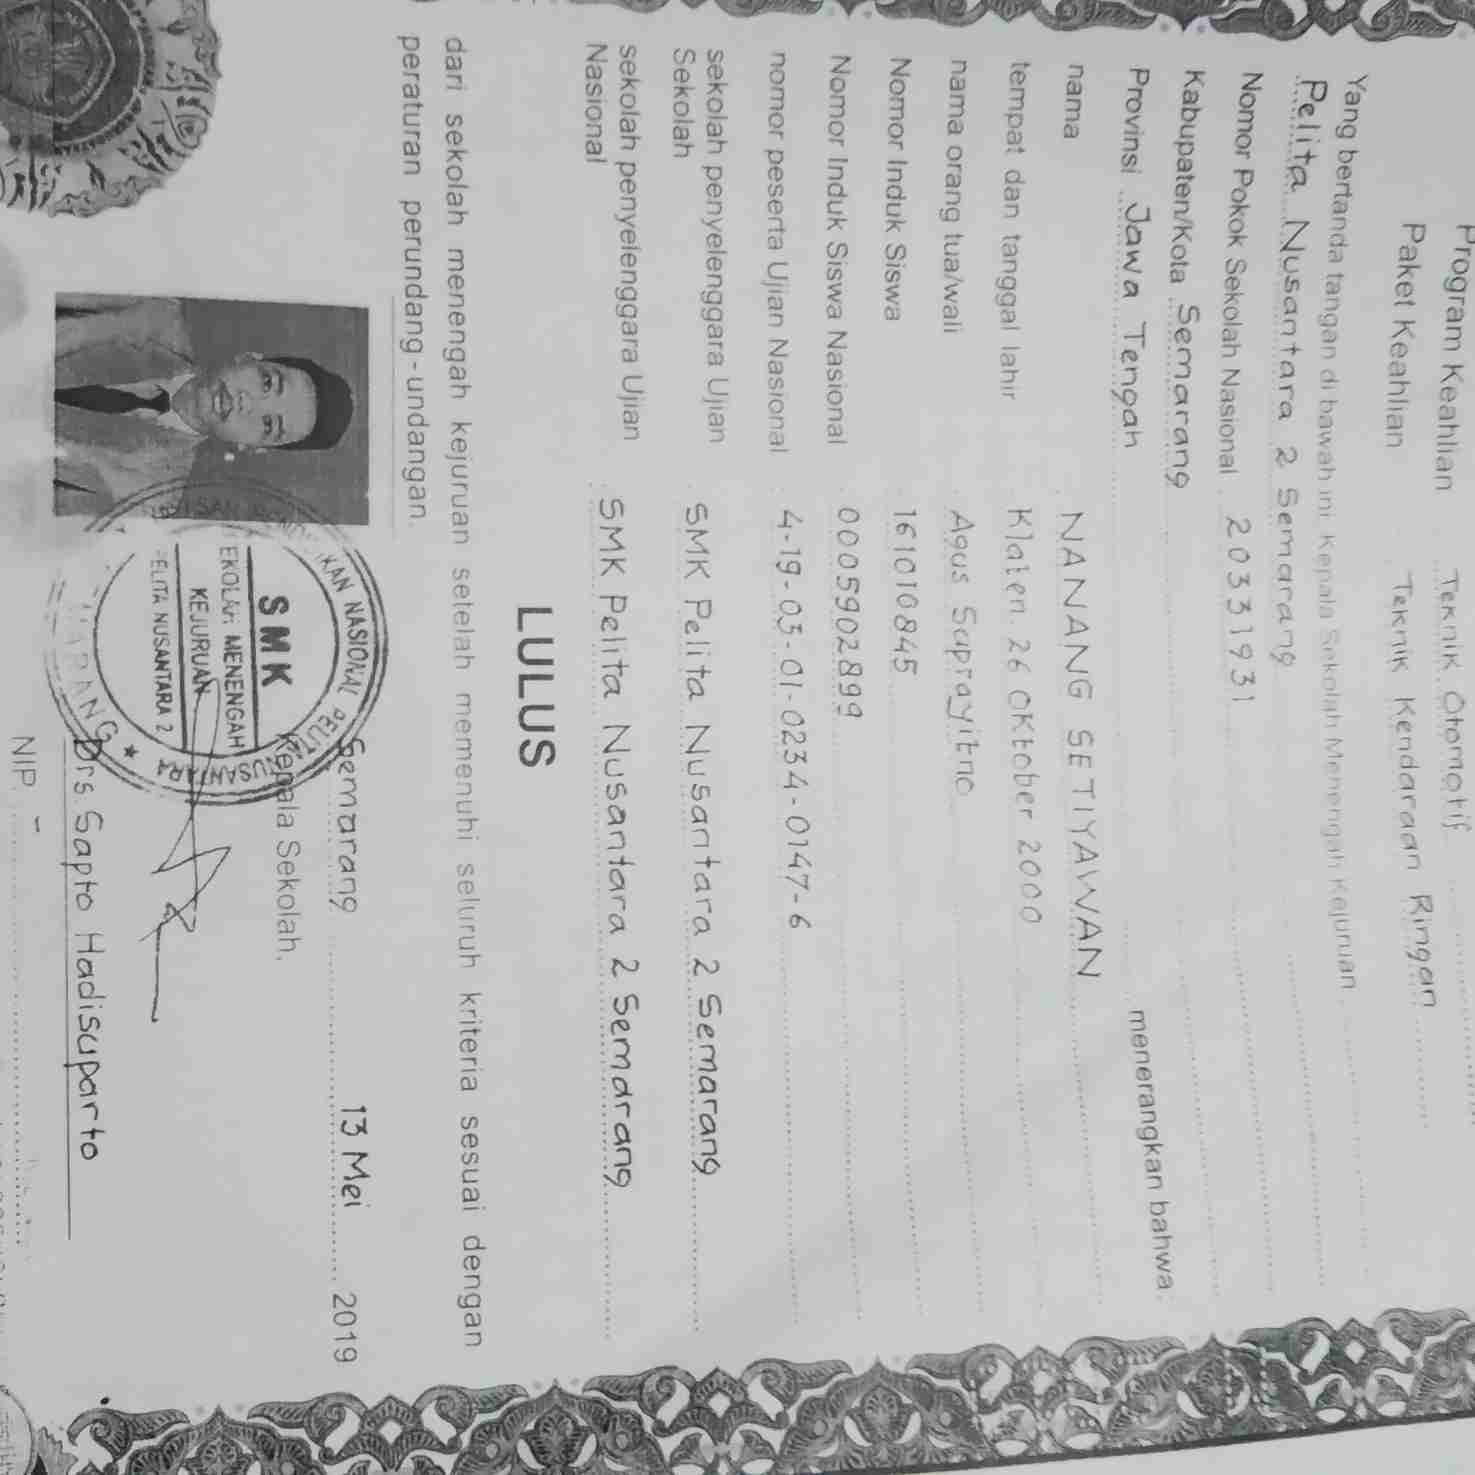 Program Keahlian : Teknik Otomotif
Paket Keahlian : Teknik Kendaraan Ringan
Yang bertanda tangan di bawah ini, Kepala Sekolah Menengah Kejuruan
Pelita Nusantara 2 Semarang
Nomor Pokok Sekolah Nasional : 20331931
Kabupaten/Kota Semarang
Provinsi Jawa Tengah menerangkan bahwa:
nama : NANANG SETIYAWAN
tempat dan tanggal lahir : Klaten, 26 Oktober 2000
nama orang tua/wali : Agus Suprayitno
Nomor Induk Siswa : 161010845
Nomor Induk Siswa Nasional : 0005902899
nomor peserta Ujian Nasional : 4-19-03-01-0234-0147-6
sekolah penyelenggara Ujian : SMK Pelita Nusantara 2 Semarang
Sekolah
sekolah penyelenggara Ujian : SMK Pelita Nusantara 2 Semarang
Nasional
LULUS
dari sekolah menengah kejuruan setelah memenuhi seluruh kriteria sesuai dengan
peraturan perundang-undangan.
Semarang 13 Mei 2019
Kepala Sekolah,
SMK
SEKOLAH MENENGAH
KEJURUAN
PELITA NUSANTARA 2
Drs. Sapto Hadisuparto
NIP. -